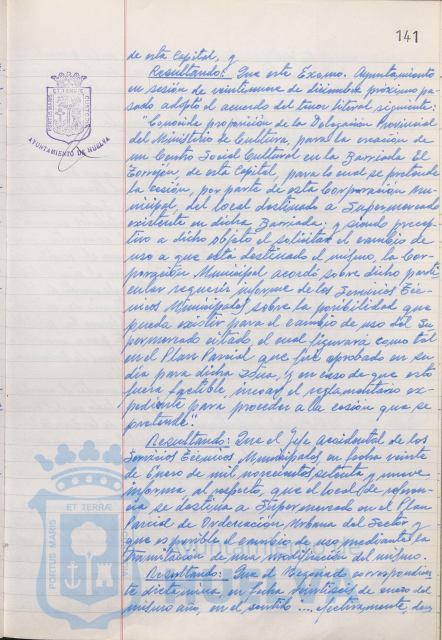 141
de esta Capital, y
Resultando: Que este Excmo. Ayuntamiento
en sesión de veintinueve de diciembre próximo pa-
sado adoptó el acuerdo del tenor literal siguiente:
"Conocida proposición de la Delegación Provincial
del Ministerio de Cultura, para la creación de
un Centro Social Cultural en la Barriada El
Torrejón, de esta Capital, para lo cual se pretende
la cesión, por parte de esta Corporación Mu-
nicipal, del local destinado a Supermercado
existente en dicha Barriada; y siendo precep-
tivo a dicho objeto el solicitar el cambio de
uso a que está destinado el mismo, la Cor-
poración Municipal acordó sobre dicho parti-
cular requerir informe de los Servicios Téc-
nicos Municipales, sobre la posibilidad que
pueda existir para el cambio de uso del Su-
permercado citado, el cual figurará como tal
en el Plan Parcial que fué aprobado en su
día para dicha Zona, y en caso de que esto
fuera factible, incoar el reglamentario ex-
pediente para proceder a la cesión que se
pretende".
Resultando: Que el Jefe accidental de los
Servicios Técnicos Municipales en fecha veinte
de Enero de mil novecientos setenta y nueve
informa al respecto, que el local de referen-
cia se destina a Supermercado en el Plan
Parcial de Ordenación Urbana del Sector y
que es posible el cambio de uso mediante la
tramitación de una modificación del mismo.
Resultando: Que el Negociado correspondien-
te dictamina, en fecha veintiseis de enero del
mismo año, en el sentido ..., efectivamente, de
AYUNTAMIENTO DE HUELVA
PORTUS MARIS
ET TERRÆ
Ayuntamiento de